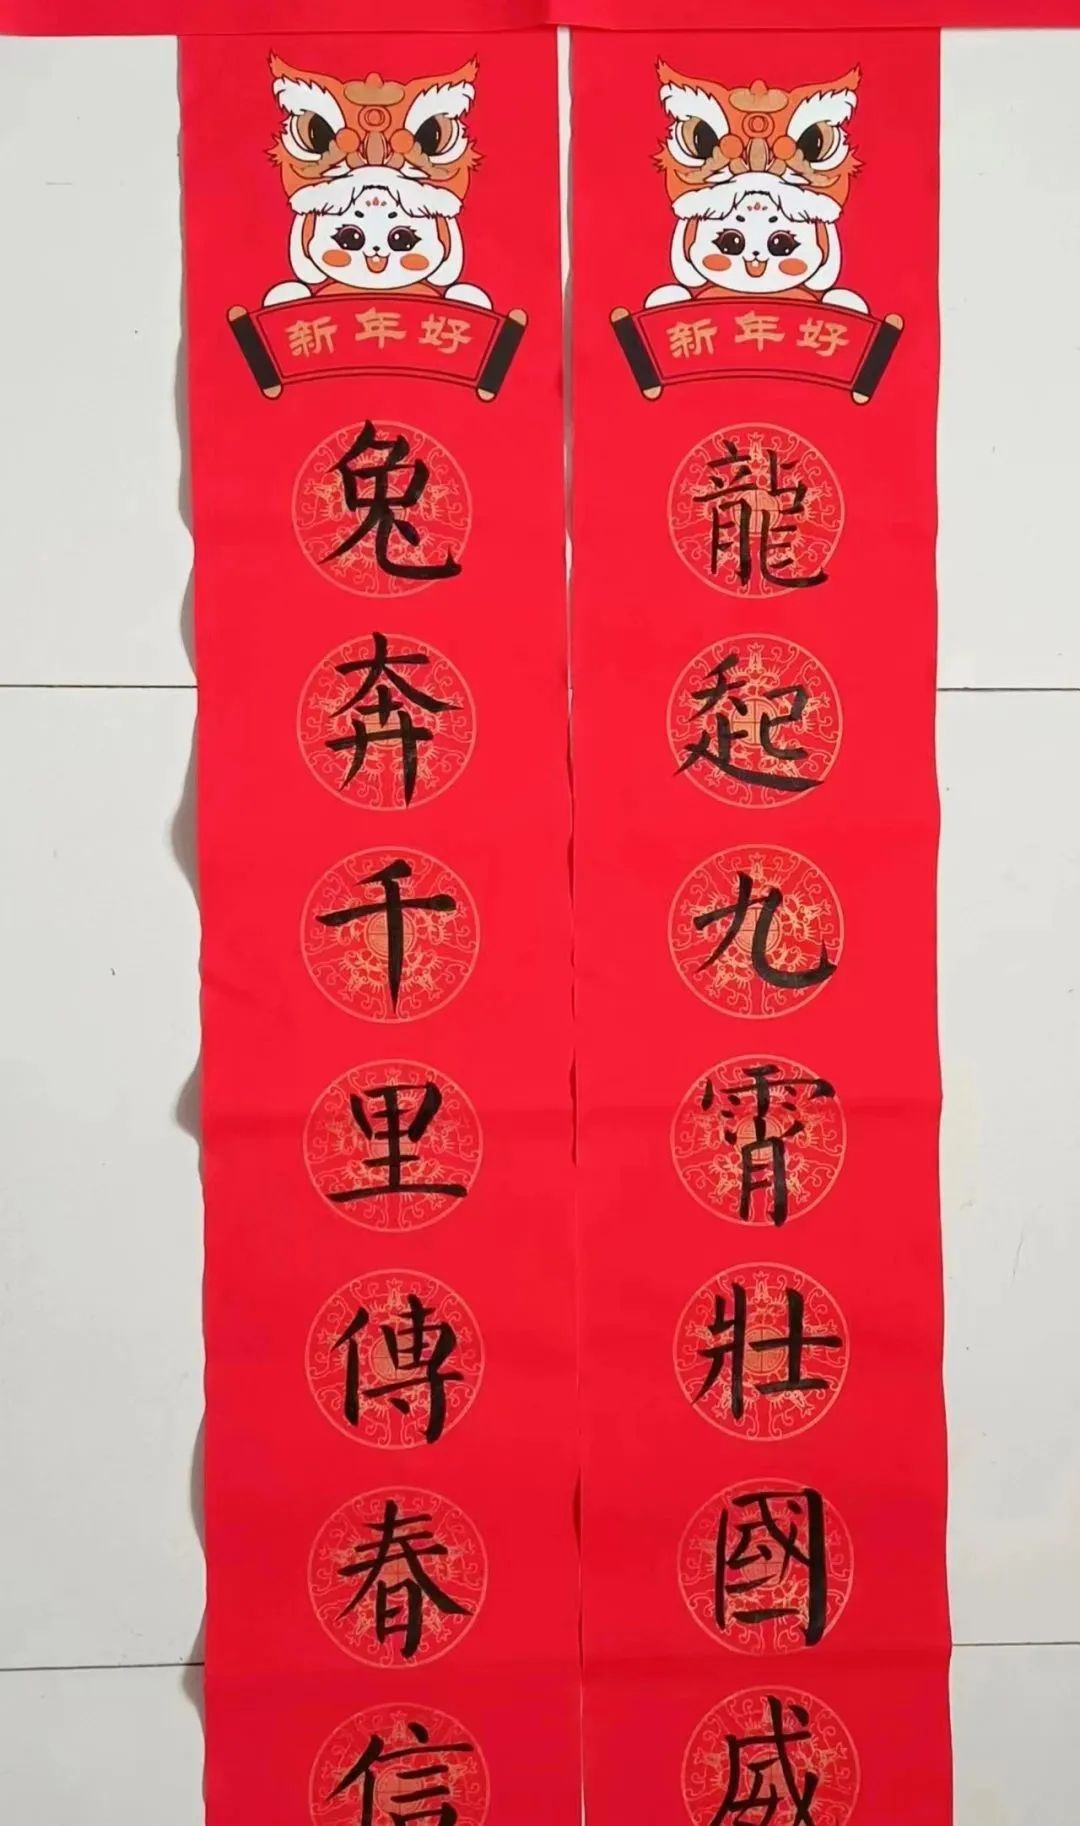 新年好
龍起九霄壯國威
新年好
兔奔千里傳春信